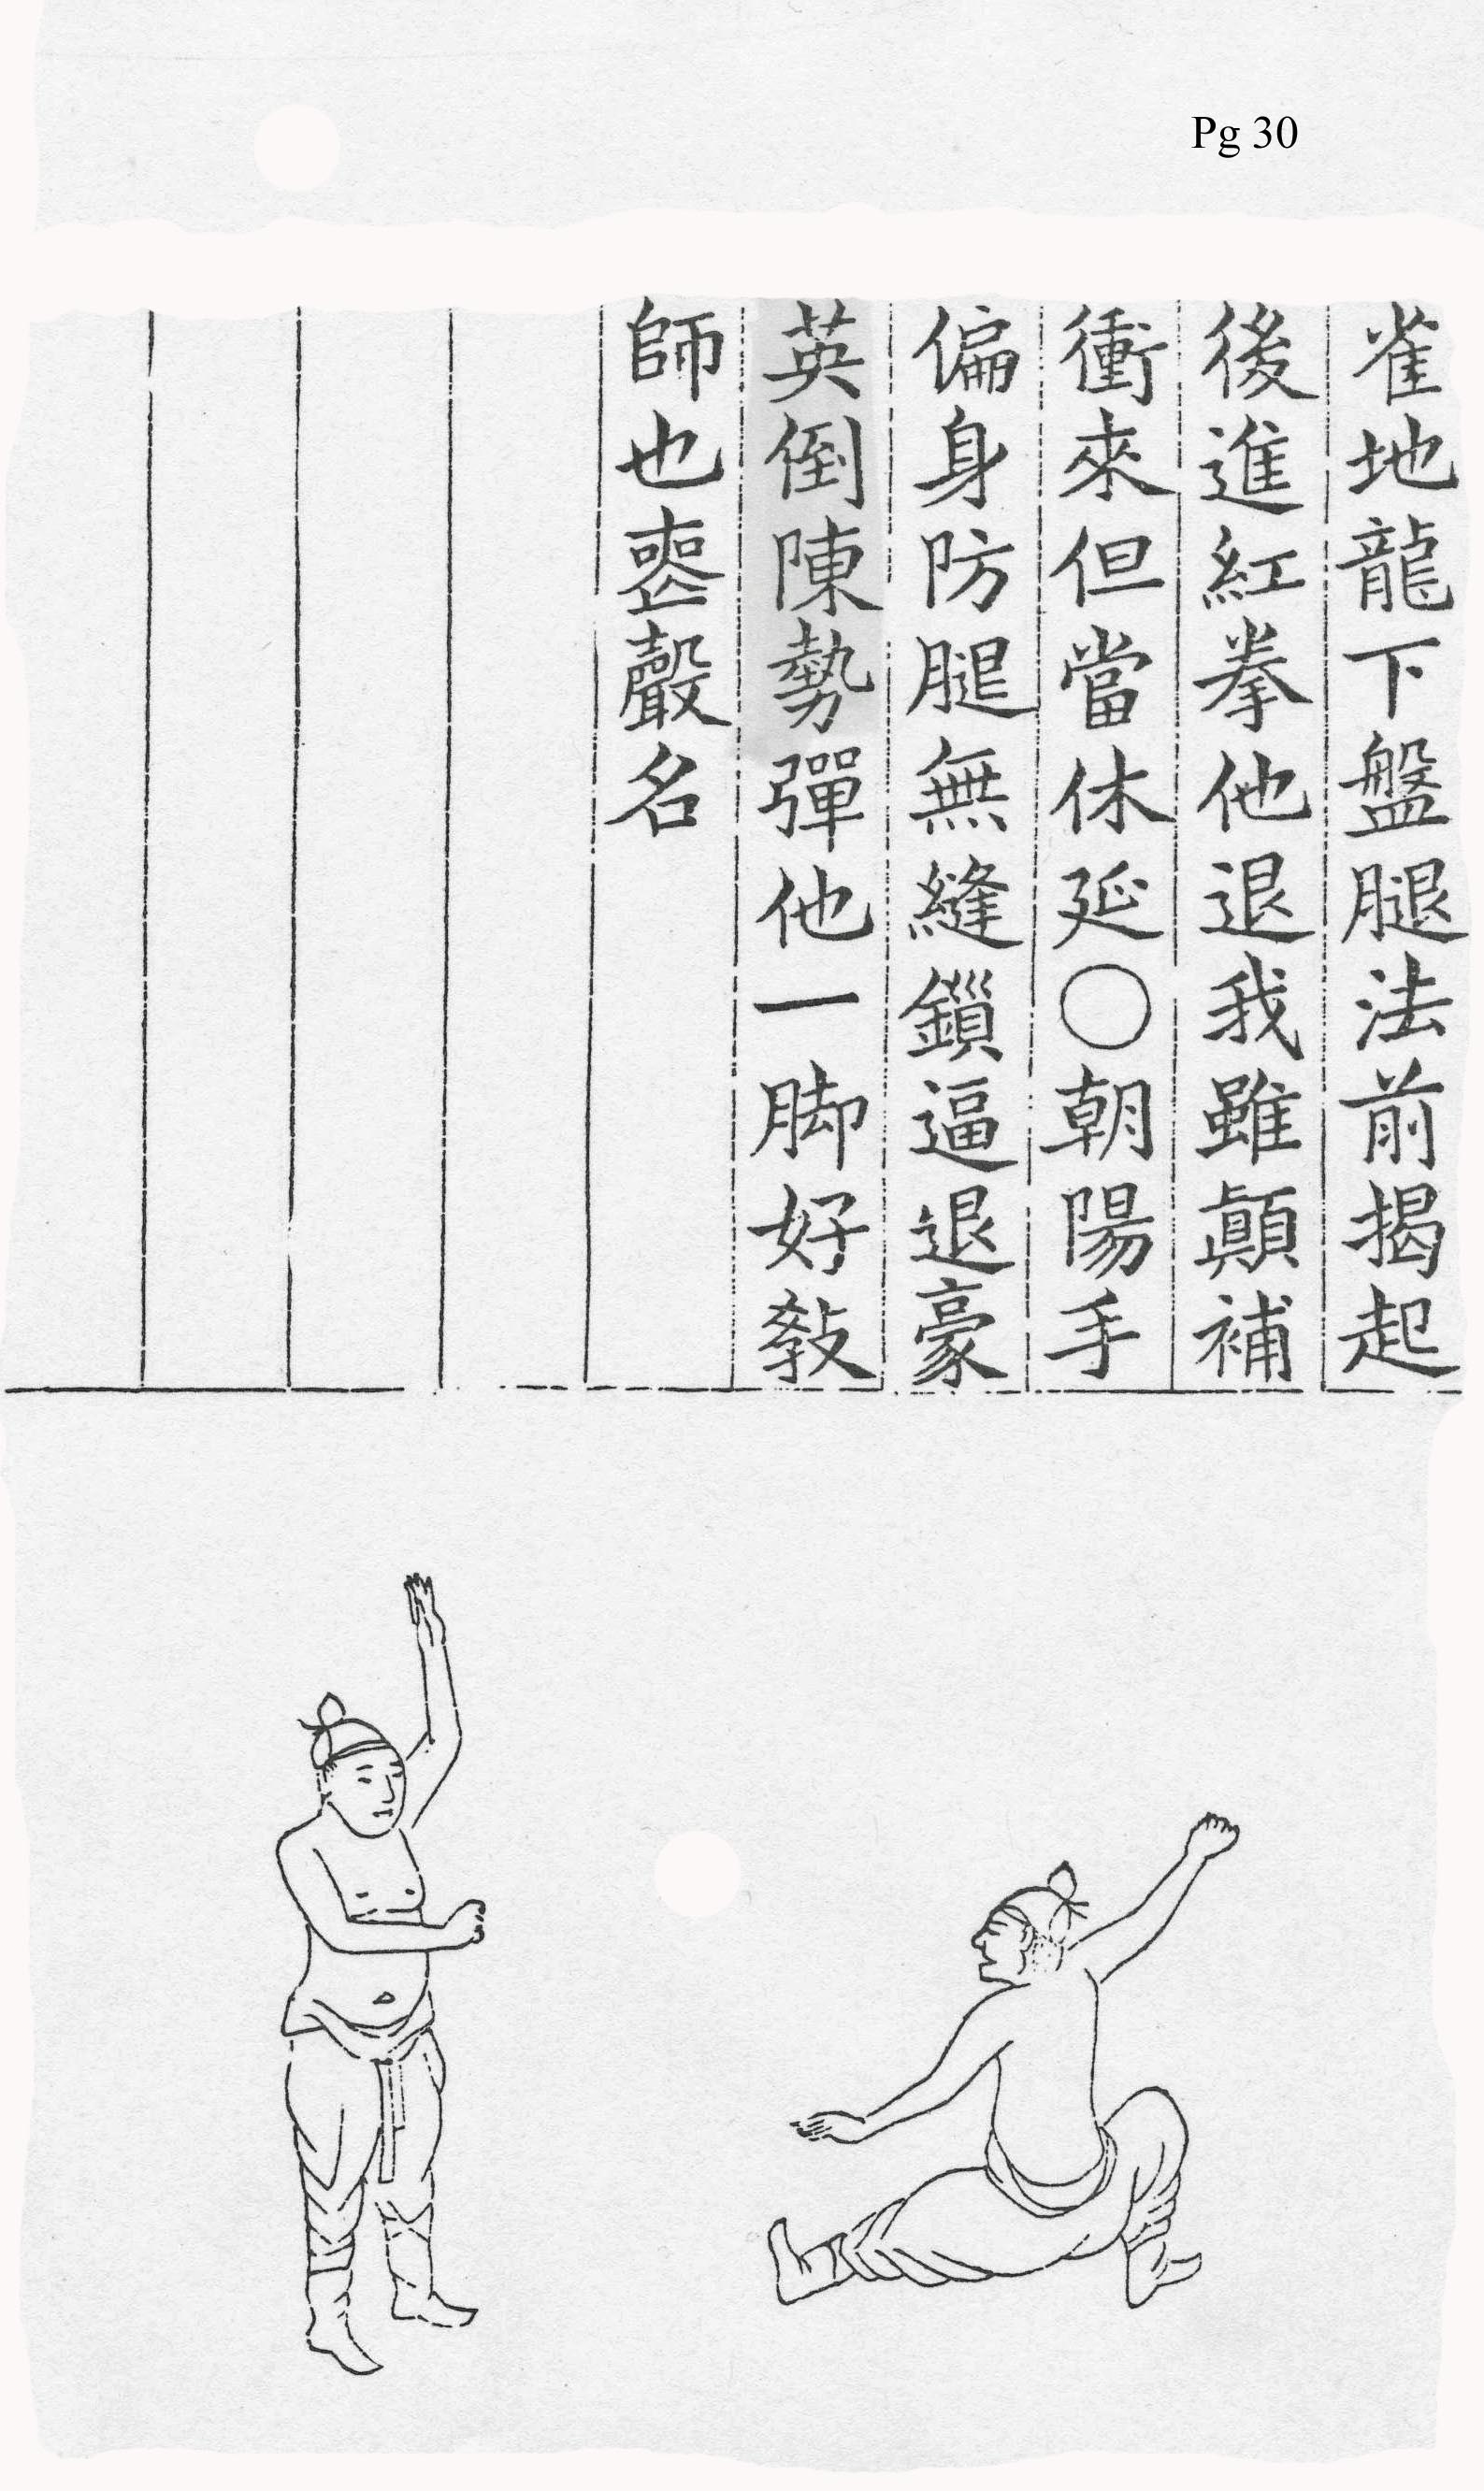 Pg 30
雀地龍下盤腿法前揭起
後進紅拳他退我雖顛補
衝來但當休延〇朝陽手
偏身防腿無縫鎻逼退豪
英倒陳勢彈他一脚好敎
師也喪聲名